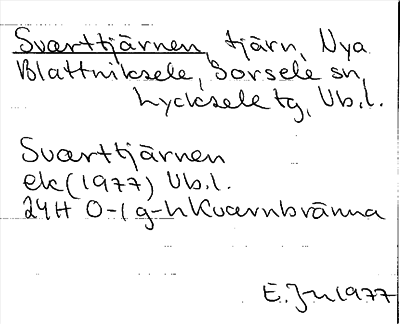 Svarttjärnen, tjärn, Nya
Blattniksele, Sorsele sn,
Lycksele tg, Vb.l.
Svarttjärnen
ek (1977) Vb.l.
24H 0-1 g-h Kvarnbränna
E. Jn 1977